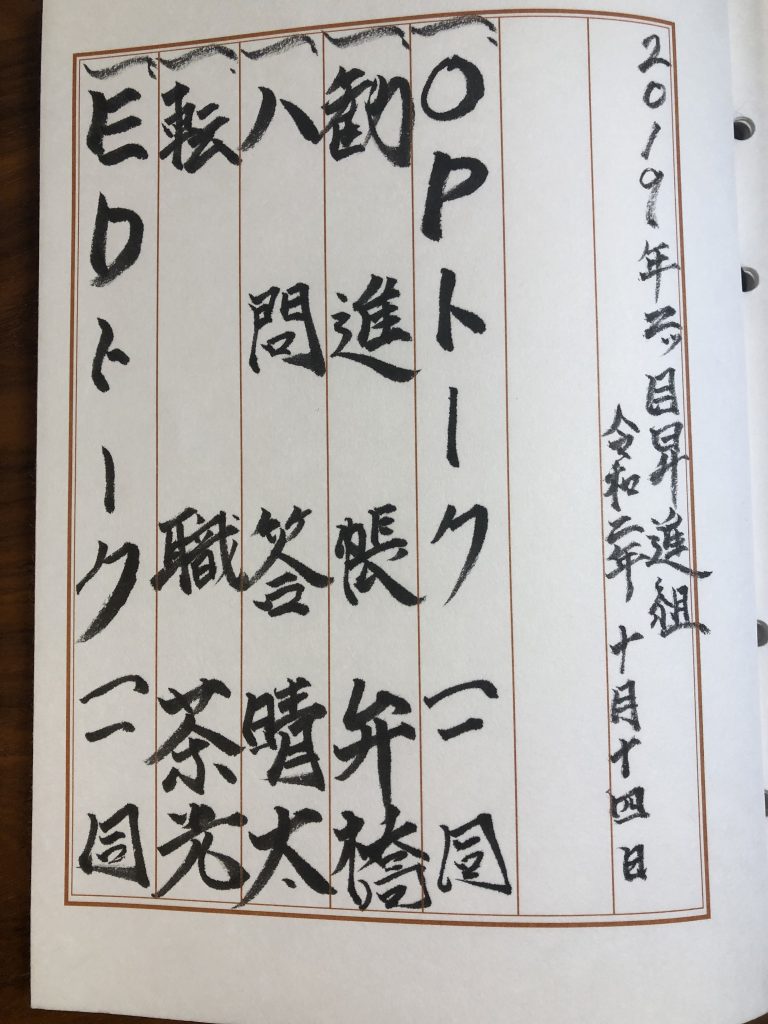 2019年二ッ目昇進組
令和二年 十月十四日
一、OPトーク 一同
一、勧進帳 弁橋
一、八問答 晴太
一、転職 茶光
一、EDトーク 一同